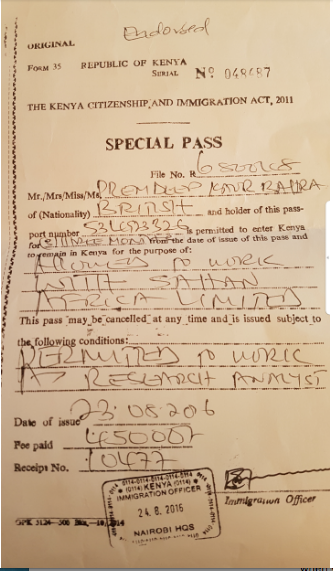 Endorsed
ORIGINAL
FORM 35 REPUBLIC OF KENYA
SERIAL Nº 048487
THE KENYA CITIZENSHIP AND IMMIGRATION ACT, 2011
SPECIAL PASS
File No. R
Mr./Mrs/Miss/Ms. PREMDEEP KAUR BAHRA
of (Nationality) BRITISH and holder of this pass-
port number is permitted to enter Kenya
for THREE MONTHS from the date of issue of this pass and
to remain in Kenya for the purpose of:
ALLOWED TO WORK
WITH SAHAN
AFRICA LIMITED
This pass may be cancelled at any time and is issued subject to
the following conditions:
PERMITTED TO WORK
AS RESEARCH ANALYST
Date of issue 23.08.206
Fee paid
Receipt No. 10477
0114-0114-0114-0114-0114
(0114) KENYA (0114)
IMMIGRATION OFFICER
24. 8. 2016
NAIROBI HQS
Immigration Officer
GPK 3124